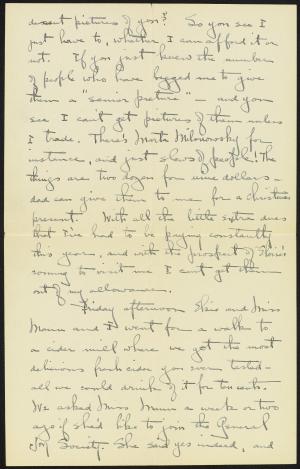 decent pictures of you? So you see I
just have to, whether I can afford it or
not. If you just knew the number
of people who have begged me to give
them a "senior picture" – and you
see I can't get pictures of them unless
I trade. There's Marta Milinowski for
instance, and just slews of people! The
things are two dozen for nine dollars –
dad can give them to me for a Christmas
present. With all the little extra dues
that I've had to be paying constantly
this year, and with the prospect of
coming to visit me I can't get them
out of my allowance.
Friday afternoon Elsie and Miss
Mann and I went for a walk to
a cider mill where we got the most
delicious fresh cider you ever tasted –
all we could drink of it for ten cents.
We asked Miss Mann a week or two
ago if she'd like to join the General
Joy Society. She said yes indeed, and